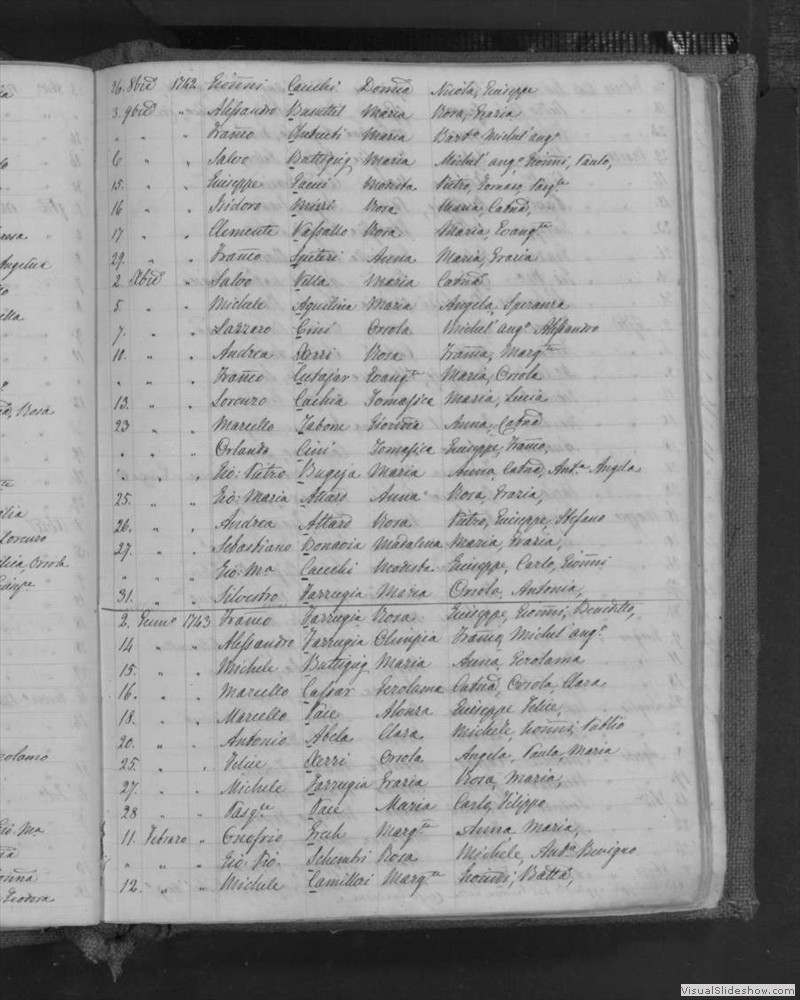 26. 8bre 1742 Gionni Cacchi Domca Nicola, Giuseppe
3. 9bre " Alessandro Busuttil Maria Rosa, Grazia
" " " Franco Maria Barto Michel'ango
6 " " Salvo Buttigig Maria Michel'ango Gionni, Paulo,
15. " " Giuseppe Modesta Pietro, Tomaso, Pasqle
16 " " Isidoro Mizzi Rosa Maria, Catna,
17 " " Clemente Vassallo Rosa Maria, Evangta
29. " " Franco Spiteri Anna Maria, Grazia
2. Xbre " Salvo Villa Maria Catna
5. " " Michele Aquilina Maria Angela, Speranza
7. " " Lazzaro Cini Orsola Michel'ango Alessandro
10. " " Andrea Xerri Rosa Franca, Margta
" " " Franco Cutajar Evangta Maria, Orsola
13. " " Lorenzo Cachia Tomasica Maria, Lucia
23 " " Marcello Tabone Gionna Anna, Catna
" " " Orlando Cini Tomasica Giuseppe, Franco,
" " " Gio: Pietro Bugeja Maria Anna, Catna, Anta Angela
25. " " Gio: Maria Attard Anna Rosa, Grazia,
26. " " Andrea Attard Rosa Pietro, Giuseppe, Stefano
27. " " Sebastiano Bonavia Madalena Maria, Grazia,
" " " Gio: Ma Cacchi Modesta Giuseppe, Carlo, Gionni
31. " " Silvestro Farrugia Maria Orsola, Antonia,
2. Genno 1743 Franco Farrugia Rosa Giuseppe, Gionni, Benedetto,
14 " " Alessandro Farrugia Olimpia Franco, Michel'ango
15. " " Michele Buttigig Maria Anna, Gerolama
16. " " Marcello Cassar Gerolama Catna, Orsola, Clara
18. " " Marcello Pace Alonza Giuseppe Felice,
20. " " Antonio Abela Clara Michele, Gionni, Publio
25. " " Felice Xerri Orsola Angela, Paula, Maria
27. " " Michele Farrugia Grazia Rosa, Maria,
28 " " Pasqle Pace Maria Carlo, Filippo
11. Febraro " Onofrio Grech Margta Anna Maria,
" " " Gio: Schembri Rosa Michele, Anto Benigno
12. " " Michele Camilleri Margta Gionni, Batta,
Angelica
Rosa
Lorenzo
Orsola
Gio: Ma
Teodora
VisualSlideshow.com